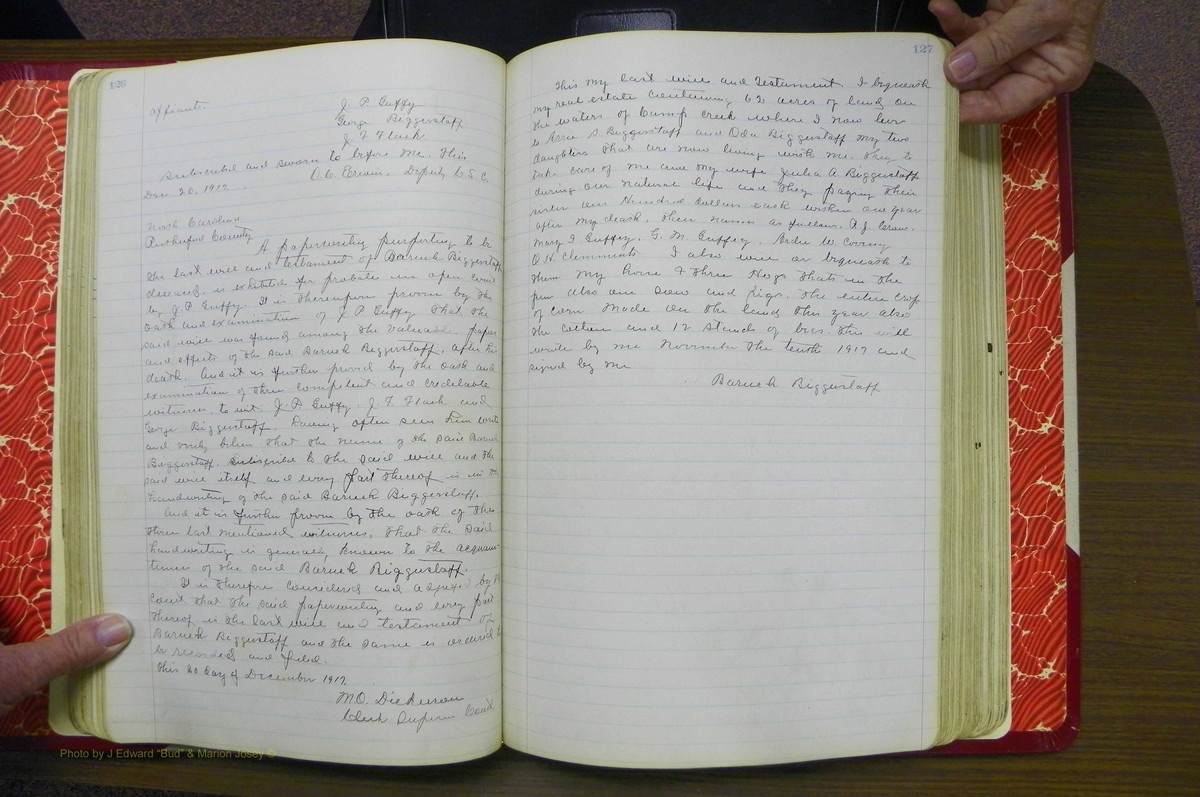 126
affiants.
J. P. Guffy
George Biggerstaff
J. F. Flack
Subscribed and sworn to before me. This
Dec 20, 1917.
Deputy C. S. C.
North Carolina
Rutherford County
A paperwriting purporting to be
the last will and testament of Baruck Biggerstaff
deceased, is exhibited for probate in open Court
by J P Guffy. It is thereupon proven by the
oath and examination of J. P Guffy that the
said will was found among the valuable paper
and effects of the said Baruck Biggerstaff. after his
death. And it is further proved by the oath and
examination of three competent and credible
witness, to wit, J. P. Guffy. J. F. Flack and
George Biggerstaff. having often seen him write
and verily believe that the name of the said Baruck
Biggerstaff. subscribe to the said will and the
said will itself and every part thereof is in the
handwriting of the said Baruck Biggerstaff.
And it is further proven by the oath of the
three last mentioned witness, that the said
handwriting is generally known to the acquain-
tences of the said Baruck Biggerstaff.
It is therefore considered and adjudged by the
Court that the said paperwriting and every part
thereof is the last will and testament of
Baruck Biggerstaff and the same is ordered to
be recorded and filed.
This 20 day of December 1917
M. O. Dickerson
Clerk Superior Court
127
This my last will and Testament I bequeath
my real estate containing 62 acres of land on
the waters of Camp creek where I now live
to S Biggerstaff and Oda Biggerstaff my two
daughters that are now living with me. They to
take care of me and my wife Julia A Biggerstaff
during our natural life and they paying their
sister one Hundred dollars each within one year
after my death. Their names as follows. A. J.
Mary I Guffey, G. M. Guffey,
O. H. Clemments. I also will or bequeath to
them my horse & three Hogs thats in the
pen also one sow and pigs. The entire crop
of corn made on the land this year also
the cotton and 12 stands of bees. This will
wrote by me November the tenth 1917 and
signed by me
Baruck Biggerstaff
Photo by J Edward "Bud" & Marion Josey ©